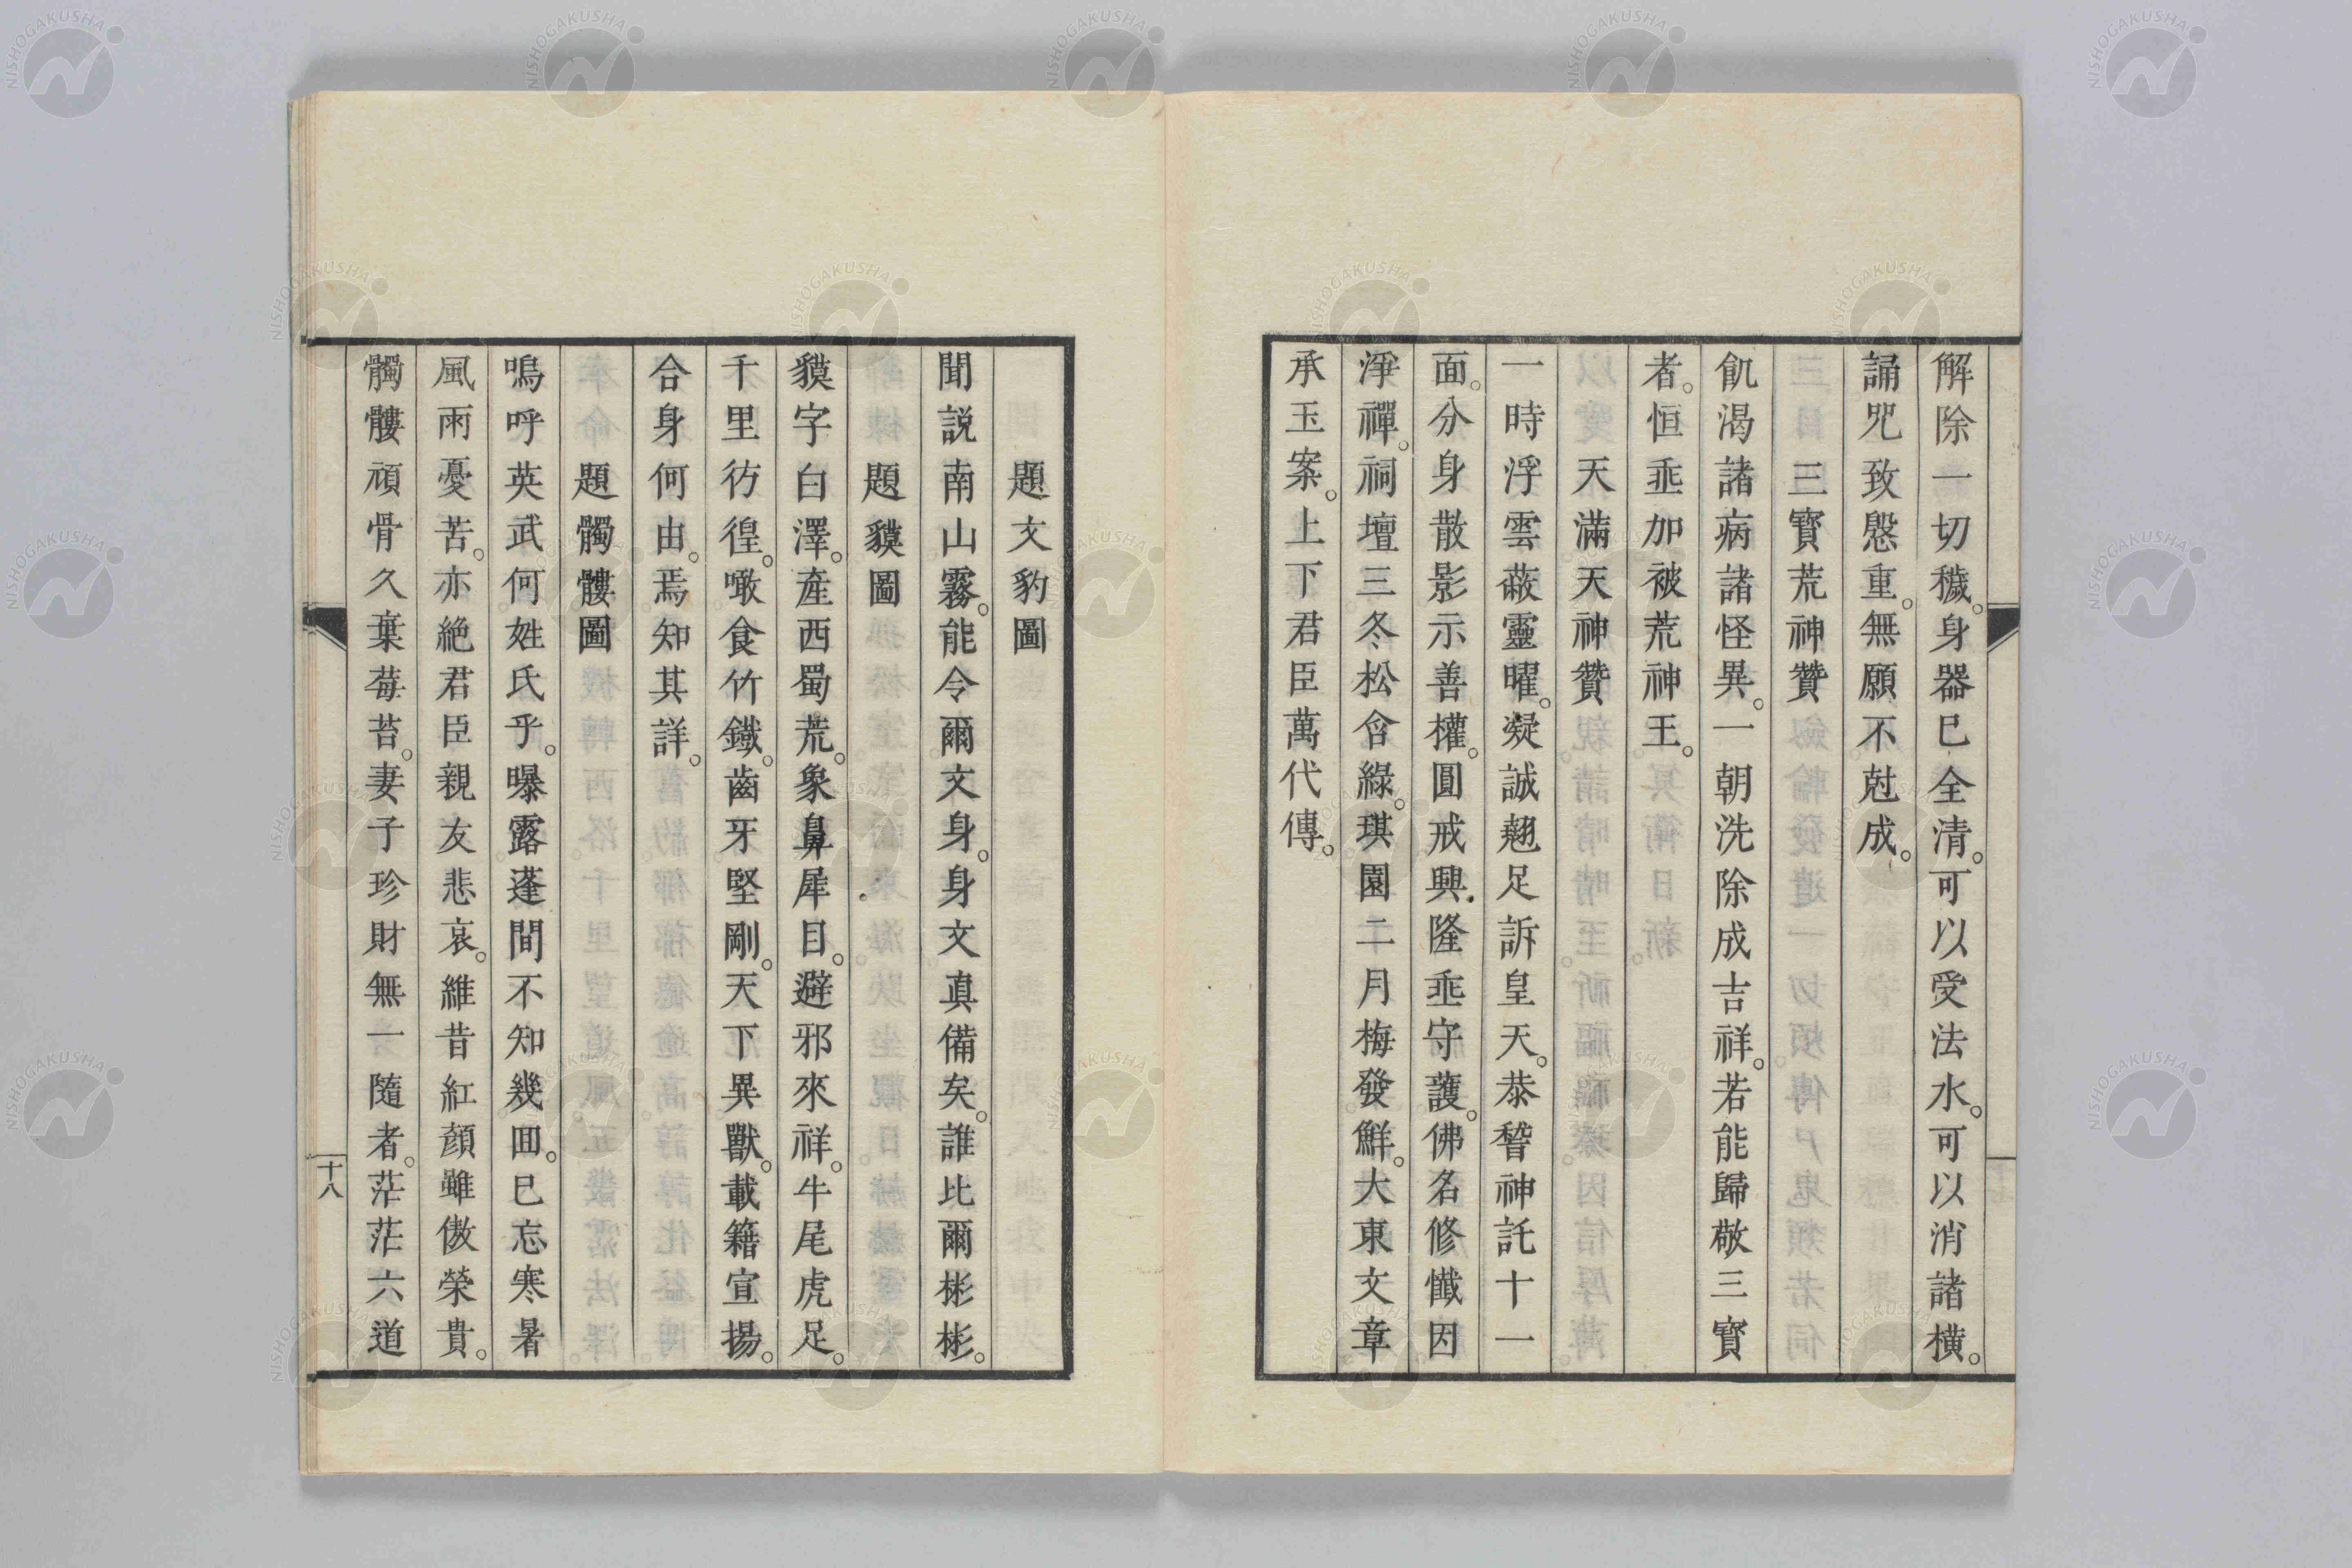 解除一切穢。身器已全清。可以受法水。可以消諸橫。
誦咒致慇重。無願不尅成。
三寶荒神贊
飢渴諸病諸怪異。一朝洗除成吉祥。若能歸敬三寶
者。恒垂加被荒神王。
天滿天神贊
一時浮雲蔽靈曜。凝誠翹足訴皇天。恭稽神託十一
面。分身散影示善權。圓戒興隆垂守護。佛名修懺因
淨禪。祠壇三冬松含綠。琪園二月梅發鮮。大東文章
承玉案。上下君臣萬代傳。
題文豹圖
聞説南山霧。能令爾文身。身文真備矣。誰比爾彬彬。
題貘圖
貘字白澤。産西蜀荒。象鼻犀目。避邪來祥。牛尾虎足。
千里彷徨。噉食竹鐵。齒牙堅剛。天下異獸。載籍宣揚。
合身何由。焉知其詳。
題髑髏圖
嗚呼英武何姓氏乎。曝露蓬間不知幾回。已忘寒暑
風雨憂苦。亦絶君臣親友悲哀。維昔紅顔雖傲榮貴。
髑髏頑骨久棄莓苔。妻子珍財無一隨者。茫茫六道
十八
NISHOGAKUSHA